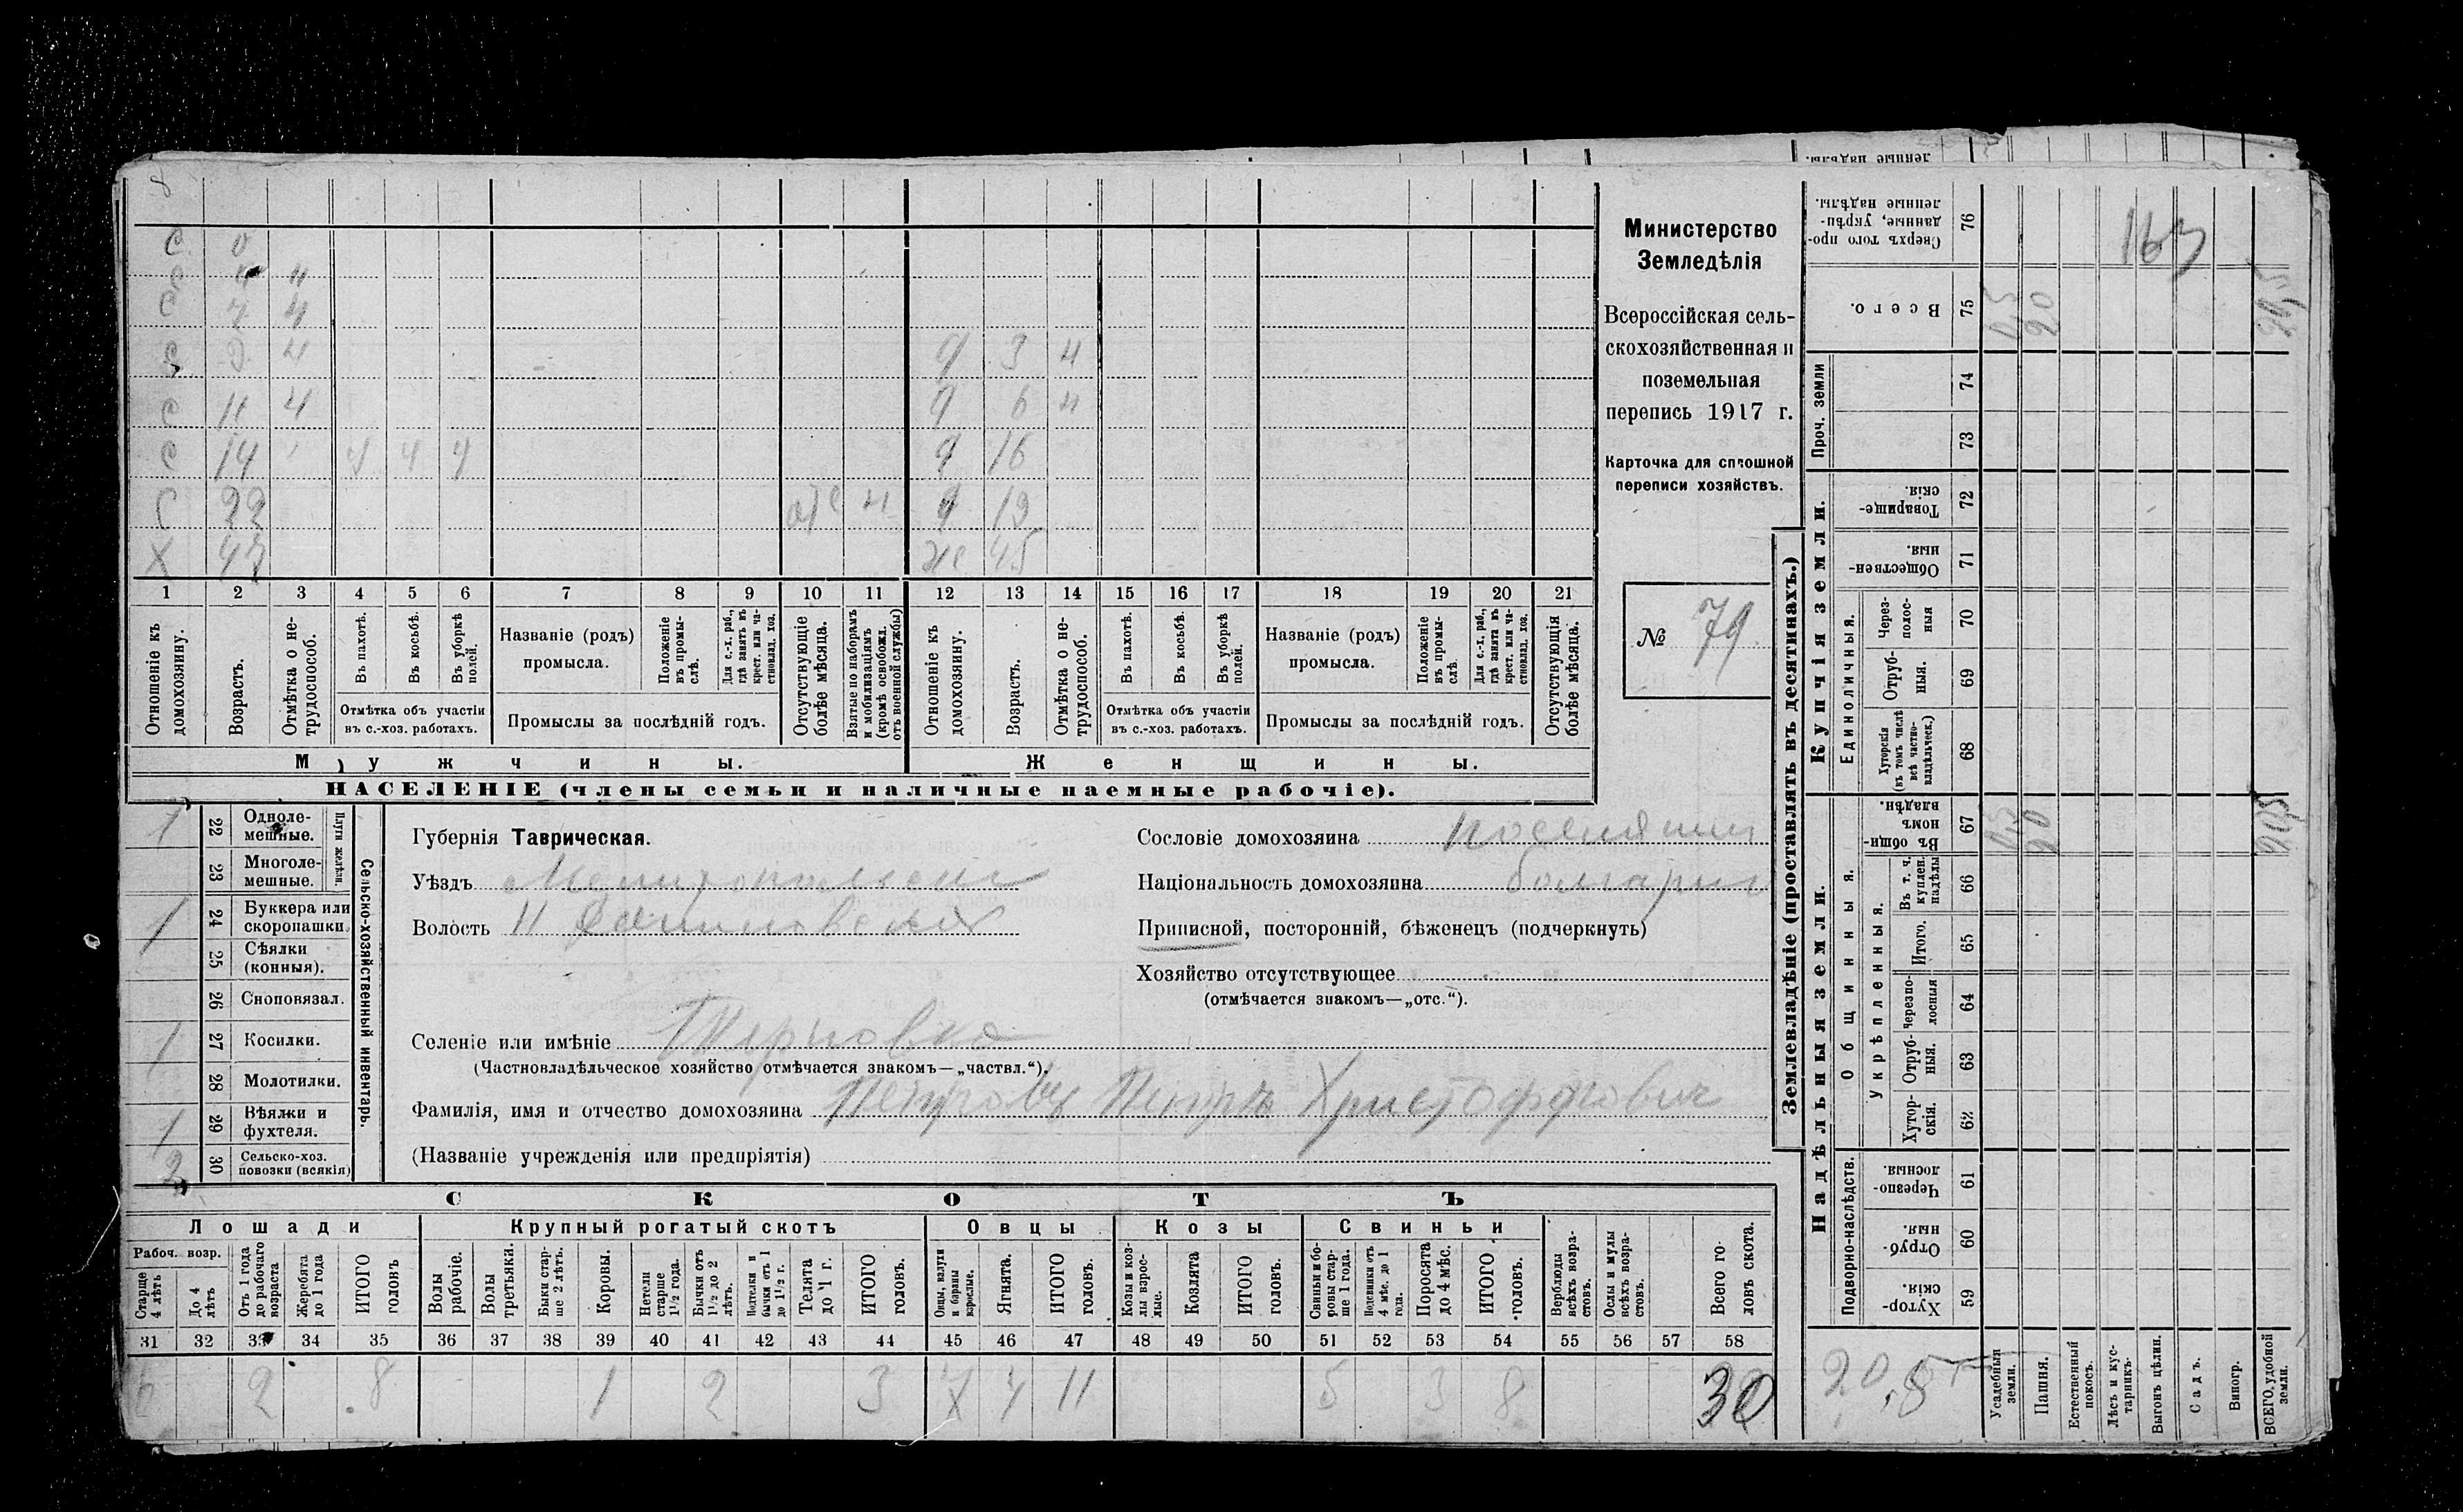 8
С 0
С 4 н
С 7 н
С 9 н
Д 3 н
С 11 н
Д 6 н
С 14 ч ч ч
Д 16
С 22 отс н
Д 19
Х 47
Же 45
1 2 3 4 5 6 7 8 9 10 11 12 13 14 15 16 17 18 19 20 21
Отношеніе къ домохозяину.
Возрастъ.
Отмѣтка о нетрудоспособ.
Въ пахотѣ.
Въ косьбѣ.
Въ уборкѣ полей.
Отмѣтка объ участіи въ с.-хоз. работахъ.
Названіе (родъ) промысла.
Положеніе въ промыслѣ.
Для с.-х. раб., гдѣ занятъ въ крест. или частновлад. хоз.
Промыслы за послѣдній годъ.
Отсутствующіе болѣе мѣсяца.
Взятые по наборамъ и мобилизаціямъ (кромѣ освобожд. отъ военной службы)
Отношеніе къ домохозяину.
Возрастъ.
Отмѣтка о нетрудоспособ.
Въ пахотѣ.
Въ косьбѣ.
Въ уборкѣ полей.
Отмѣтка объ участіи въ с.-хоз. работахъ.
Названіе (родъ) промысла.
Положеніе въ промыслѣ.
Для с.-х. раб., гдѣ занята въ крест. или частновлад. хоз.
Промыслы за послѣдній годъ.
Отсутствующія болѣе мѣсяца.
Мужчины.
Женщины.
НАСЕЛЕНІЕ (члены семьи и наличные наемные рабочіе).
Министерство
Земледѣлія
Всероссійская сель-
скохозяйственная и
поземельная
перепись 1917 г.
Карточка для сплошной
переписи хозяйствъ.
№ 79
1 22 Однолемешные.
23 Многолемешные.
Плуги желѣзн.
1 24 Буккера или скоропашки.
25 Сѣялки (конныя).
26 Сноповязал.
1 27 Косилки.
28 Молотилки.
1 29 Вѣялки и фухтеля.
2 30 Сельско-хоз. повозки (всякія)
Сельско-хозяйственный инвентарь.
Губернія Таврическая.
Уѣздъ Мелитопольскій
Волость
Селеніе или имѣніе Терновка
(Частновладѣльческое хозяйство отмѣчается знакомъ—„частвл.“).
Фамилія, имя и отчество домохозяина Петровъ Петръ Христофорович
(Названіе учрежденія или предпріятія)
Сословіе домохозяина поселянин
Національность домохозяина болгарин
Приписной, посторонній, бѣженецъ (подчеркнуть)
Хозяйство отсутствующее
(отмѣчается знакомъ—„отс.“).
СКОТЪ
Лошади
Крупный рогатый скотъ
Овцы
Козы
Свиньи
Рабоч. возр.
Старше 4 лѣтъ
До 4 лѣтъ
Отъ 1 года до рабочаго возраста
Жеребята до 1 года
ИТОГО головъ
Волы рабочіе.
Волы третьяки.
Быки старше 2 лѣтъ.
Коровы.
Нетели старше 1½ года.
Бычки отъ 1½ до 2 лѣтъ.
Подтелки и бычки отъ 1 до 1½ г.
Телята до 1 г.
ИТОГО головъ.
Овцы, валухи и бараны взрослые.
Ягнята.
ИТОГО головъ.
Козы и козлы взрослые.
Козлята
ИТОГО головъ.
Свиньи и боровы старше 1 года.
Подсвинки отъ 4 мѣс. до 1 года.
Поросята до 4 мѣс.
ИТОГО головъ.
Верблюды всѣхъ возрастовъ.
Ослы и мулы всѣхъ возрастовъ.
Всего головъ скота.
31 32 33 34 35 36 37 38 39 40 41 42 43 44 45 46 47 48 49 50 51 52 53 54 55 56 57 58
6 2 8 1 2 3 7 4 11 5 3 8 30
Землевладѣніе (проставлять въ десятинахъ.)
Купчія земли.
Надѣльныя земли.
Сверхъ того проданные, укрѣпленные надѣлы. 76
163
Всего. 75 0,5 20 20,5
Проч. земли
74
73
Товарищескія. 72
Общественныя. 71
Единоличныя.
Черезполосныя 70
Отрубныя. 69
Хуторскія (въ томъ числѣ всѣ частновладѣльческ.) 68
Общинныя.
Въ общинномъ владѣн. 67 0,5 20 20,5
Укрѣпленныя.
Въ т. ч. куплен. надѣлы 66
Итого. 65
Черезполосныя 64
Отрубныя. 63
Хуторскія. 62
Подворно-наслѣдств.
Черезполосныя. 61
Отрубныя. 60
Хуторскія. 59
20,5
Усадебныя земли.
Пашня.
Естественный покосъ.
Лѣсъ и кустарникъ.
Выгонъ цѣлин.
Садъ.
Виногр.
ВСЕГО, удобной земли.
ленные надѣлы.